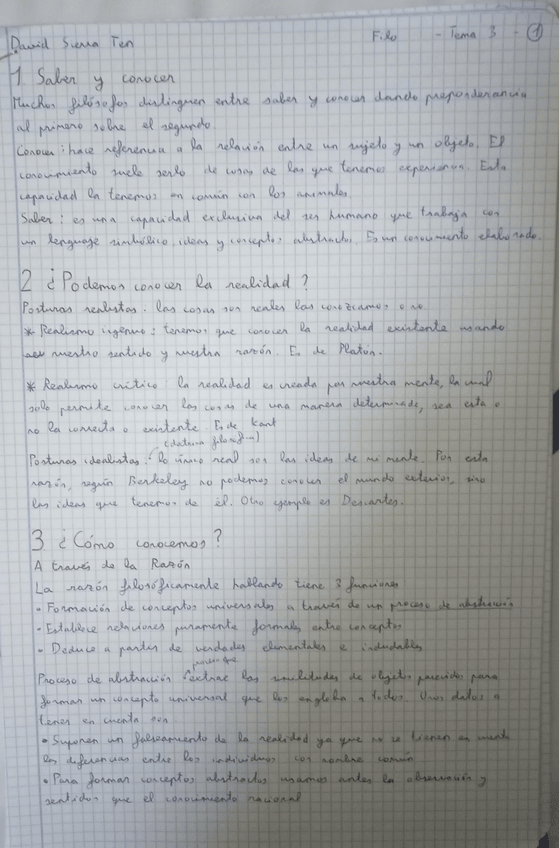 David Sierra Ten
Filo - Tema 3 - 1
1 Saber y conocer
Muchos filósofos distinguen entre saber y conocer dando preponderancia
al primero sobre el segundo.
Conocer: hace referencia a la relación entre un sujeto y un objeto. El
conocimiento suele serlo de cosas de las que tenemos experiencia. Esta
capacidad la tenemos en común con los animales
Saber: es una capacidad exclusiva del ser humano que trabaja con
un lenguage simbólico, ideas y conceptos abstractos. Es un conocimiento elaborado.
2 ¿Podemos conocer la realidad?
Posturas realistas. las cosas son reales las conozcamos o no
* Realismo ingenuo: tenemos que conocer la realidad existente usando
nuestro sentido y nuestra razón. Es de Platón.
* Realismo crítico la realidad es creada por nuestra mente, la cual
solo permite conocer las cosas de una manera determinada, sea esta o
no la correcta o existente Es de Kant
Posturas idealistas: lo único real son las ideas de mi mente. Por esta
razón, según Berkeley no podemos conocer el mundo exterior, sino
las ideas que tenemos de él. Otro ejemplo es Descartes.
3 ¿Cómo conocemos?
A través de la Razón
La razón filosóficamente hablando tiene 3 funciones
- Formación de conceptos universales a través de un proceso de abstracción
- Establece relaciones puramente formales entre conceptos
- Deduce a partir de verdades elementales e indudables
Proceso de abstracción: extrae las similitudes de objetos parecidos para
formar un concepto universal que los engloba a todos. Unos datos a
tener en cuenta son
• Suponen un falseamiento de la realidad ya que no se tienen en cuenta
las diferencias entre los individuos con nombre común
• Para formar conceptos abstractos usamos antes la observación y
sentidos que el conocimiento racional